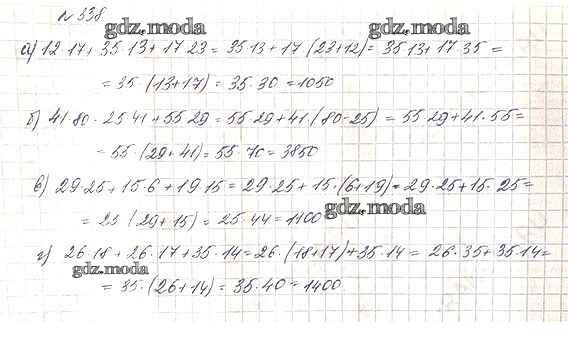 № 338
gdz.moda gdz.moda
а) 12 17 + 35 13 + 17 23 = 35 13 + 17 (23+12) = 35 13 + 17 35 =
= 35 (13+17) = 35. 30 = 1050
б) 41 80 - 25 41 + 55 29 = 55 29 + 41 (80-25) = 55 29 + 41. 55 =
= 55 (29+41) = 55. 70 = 3850
в) 29·25 + 15·6 + 19 15 = 29·25 + 15·(6+19) = 29·25 + 15· 25 =
= 25 (29+15) = 25·44 = 1100
gdz.moda
г) 26·18 + 26·17 + 35·14 = 26·(18+17) + 35·14 = 26·35 + 35·14 =
gdz.moda
= 35·(26+14) = 35·40 = 1400